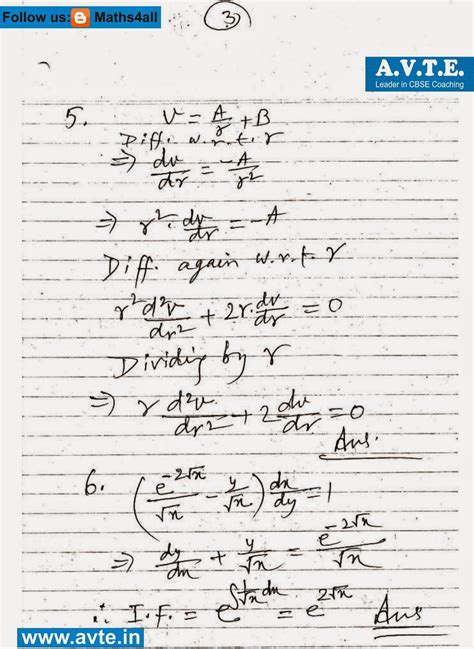 Follow us: B Maths4all
3
A.V.T.E.
Leader in CBSE Coaching
5. V = A/r + B
Diff. w.r.t. r
⇒ dv/dr = -A/r²
⇒ r². dv/dr = -A
Diff. again w.r.t. r
r² d²v/dr² + 2r. dv/dr = 0
Dividing by r
⇒ r d²v/dr² + 2 dv/dr = 0
Ans.
6. (e^-2√x/√x - y/√x) dx/dy = 1
⇒ dy/dx + y/√x = e^-2√x/√x
∴ I.F. = e^∫1/√x dx = e^2√x Ans
www.avte.in